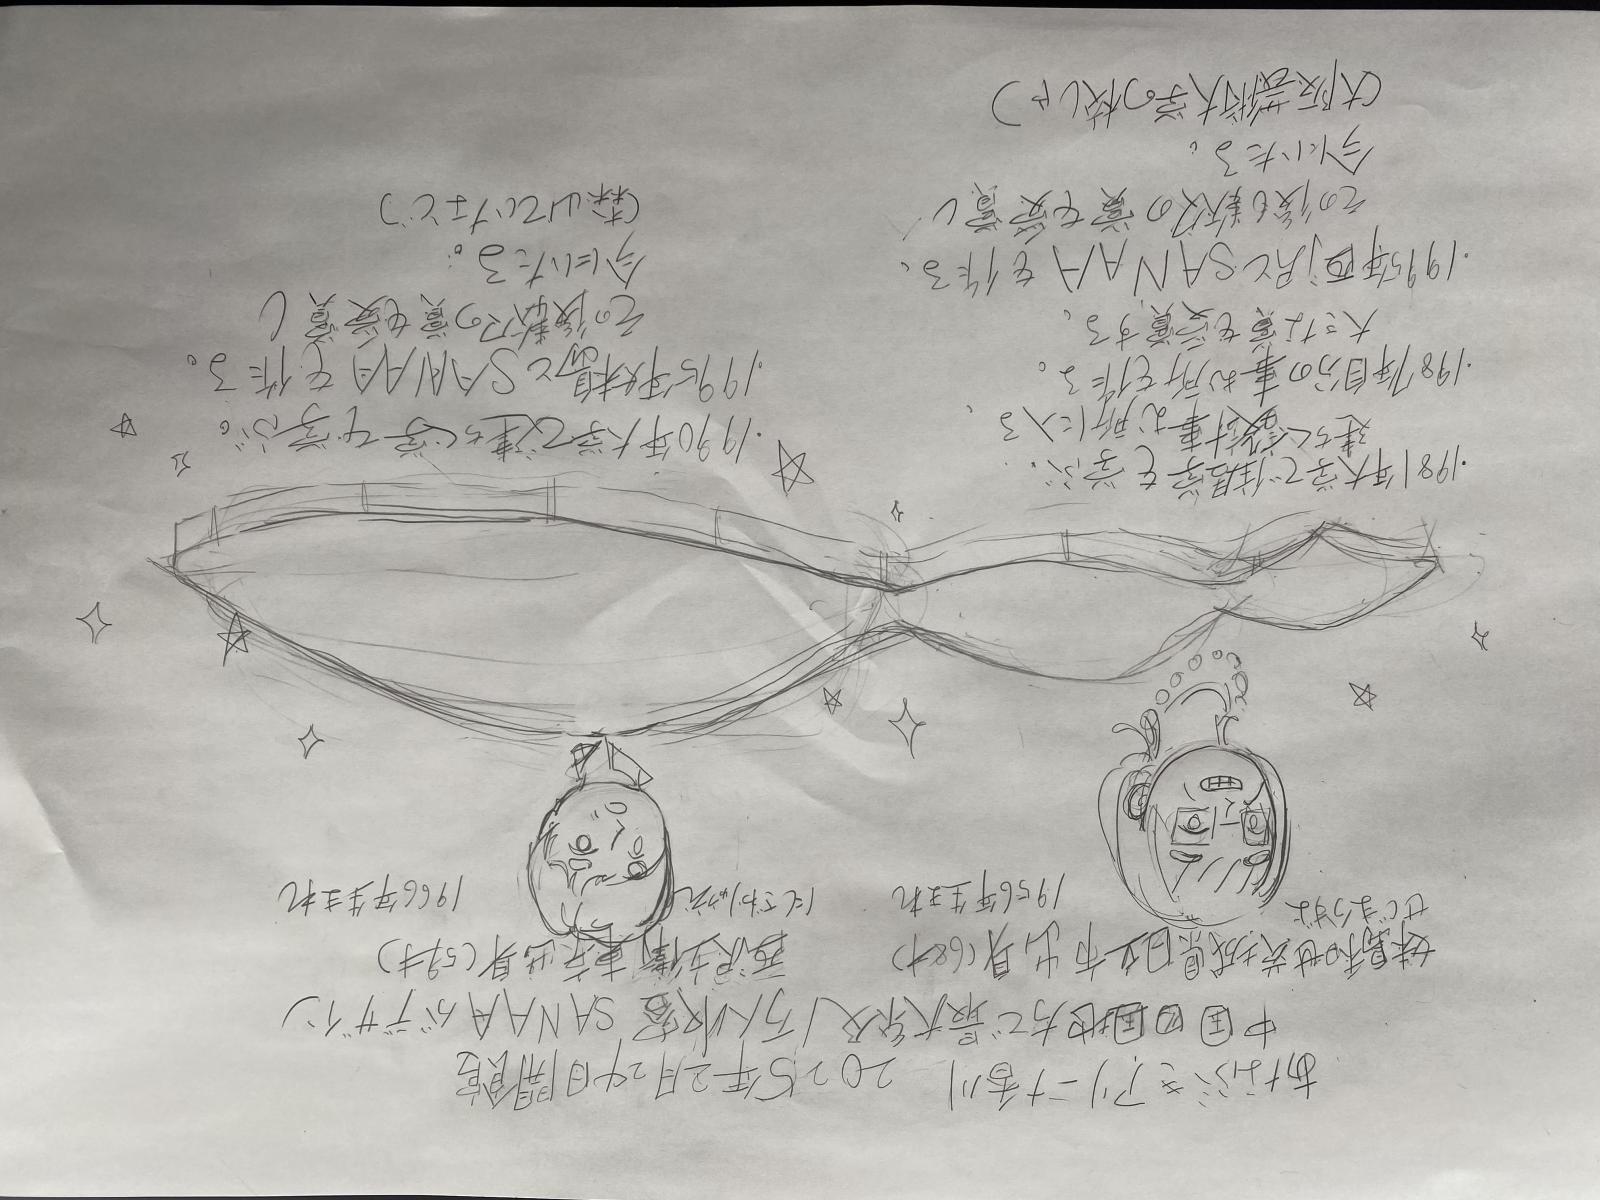 あなぶきアリーナ香川 2025年2月24日開館
中国四国地方で最大級 1万人収容 SANAAがデザイン
妹島和世 茨城県日立市出身(68才)
せじまかずよ
1956年生まれ
西沢立衛 東京出身(59才)
にしざわりゅうえ
1966年生まれ
・1981年大学で住居学を学ぶ。
建ちく設計事む所に入る
・1987年自分の事む所を作る。
大きな賞を受賞する。
・1995年西沢とSANAAを作る。
その後も数々の賞を受賞し
今にいたる。
(大阪芸術大学の校しゃ)
・1990年大学で建ちく学を学ぶ。
・1995年妹島とSANAAを作る。
その後数々の賞を受賞し
今にいたる。
(森山ていなど)